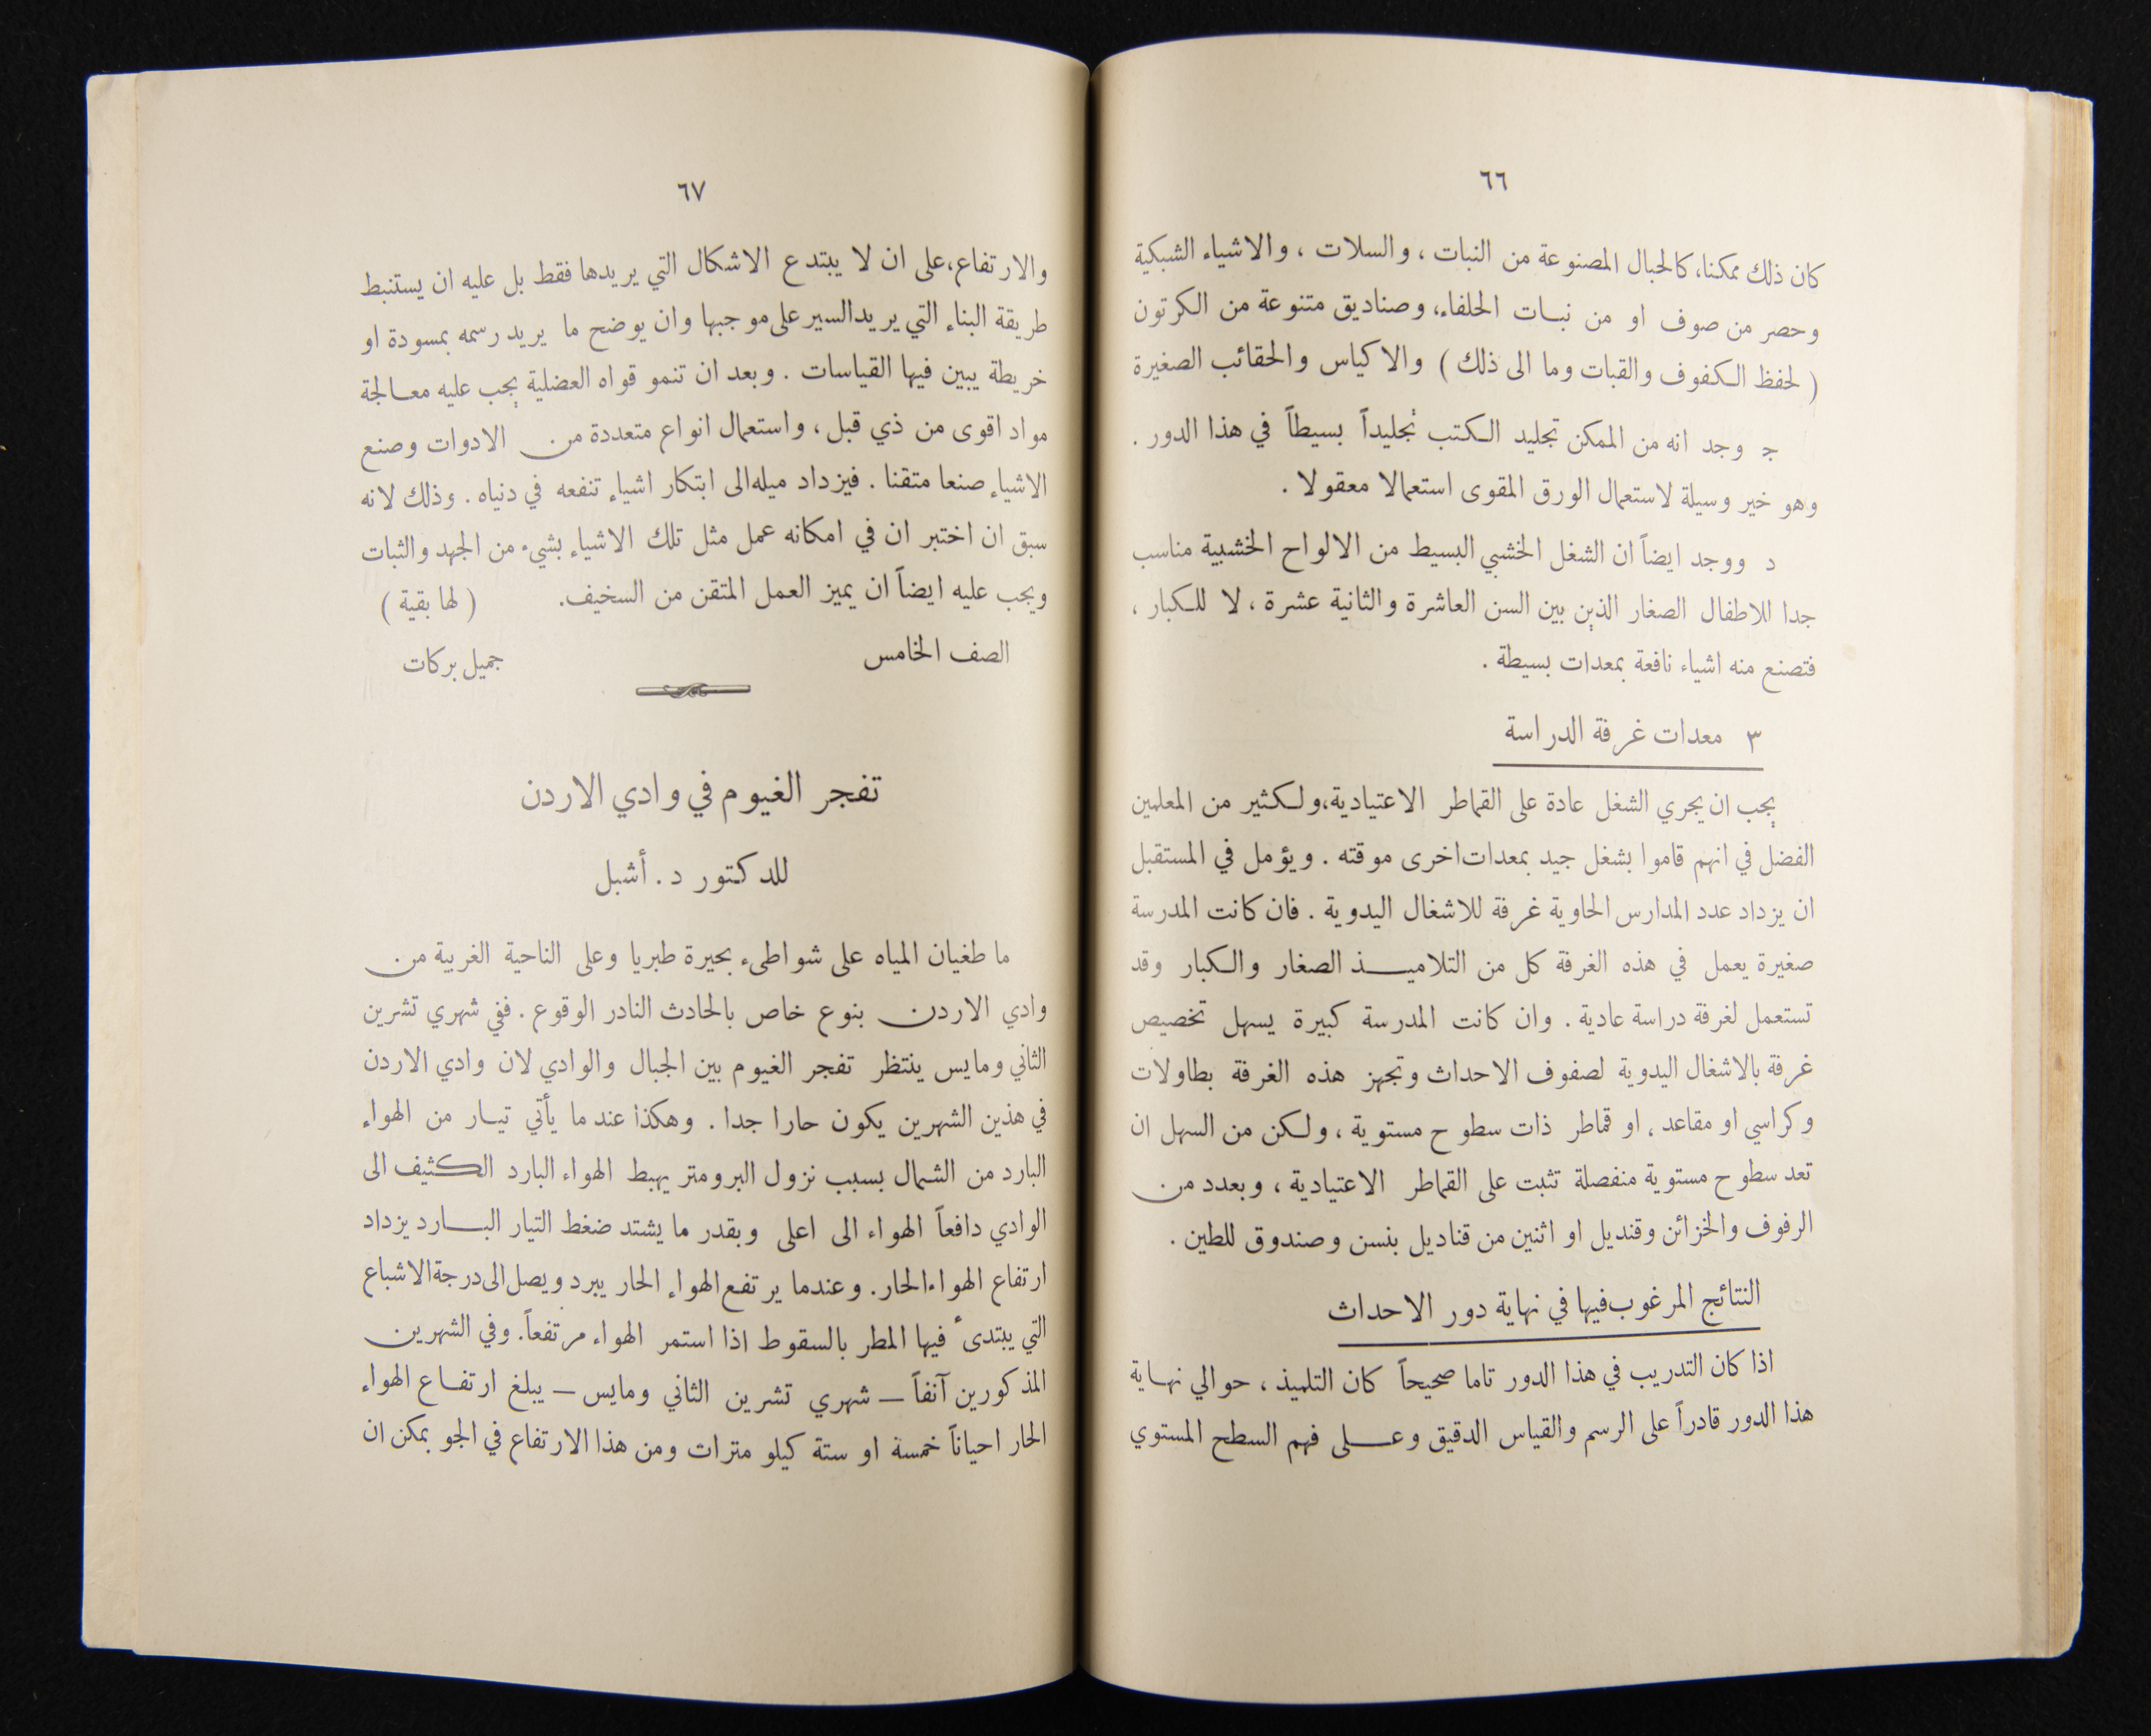 ٦٦
كان ذلك ممكنا، كالحبال المصنوعة من النبات ، والسلات ، والاشياء الشبكية
وحصر من صوف او من نبات الحلفاء، وصناديق متنوعة من الكرتون
( لحفظ الكفوف والقبات وما الى ذلك ) والاكياس والحقائب الصغيرة
ج وجد انه من الممكن تجليد الكتب تجليداً بسيطاً في هذا الدور .
وهو خير وسيلة لاستعمال الورق المقوى استعمالا معقولا .
د ووجد ايضاً ان الشغل الخشبي البسيط من الالواح الخشبية مناسب
جدا للاطفال الصغار الذين بين السن العاشرة والثانية عشرة ، لا للكبار ،
فتصنع منه اشياء نافعة بمعدات بسيطة .
٣ معدات غرفة الدراسة
يجب ان يجري الشغل عادة على القماطر الاعتيادية، ولكثير من المعلمين
الفضل في انهم قاموا بشغل جيد بمعدات اخرى موقته . ويؤمل في المستقبل
ان يزداد عدد المدارس الحاوية غرفة للاشغال اليدوية . فان كانت المدرسة
صغيرة يعمل في هذه الغرفة كل من التلاميذ الصغار والكبار وقد
تستعمل لغرفة دراسة عادية . وان كانت المدرسة كبيرة يسهل تخصيص
غرفة بالاشغال اليدوية لصفوف الاحداث وتجهز هذه الغرفة بطاولات
وكراسي او مقاعد ، او قماطر ذات سطوح مستوية ، ولكن من السهل ان
تعد سطوح مستوية منفصلة تثبت على القماطر الاعتيادية ، وبعدد من
الرفوف والخزائن وقنديل او اثنين من قناديل بنسن وصندوق للطين .
النتائج المرغوب فيها في نهاية دور الاحداث
اذا كان التدريب في هذا الدور تاما صحيحاً كان التلميذ ، حوالي نهاية
هذا الدور قادراً على الرسم والقياس الدقيق وعلى فهم السطح المستوي
٦٧
والارتفاع، على ان لا يبتدع الاشكال التي يريدها فقط بل عليه ان يستنبط
طريقة البناء التي يريد السير على موجبها وان يوضح ما يريد رسمه بمسودة او
خريطة يبين فيها القياسات . وبعد ان تنمو قواه العضلية يجب عليه معالجة
مواد اقوى من ذي قبل ، واستعمال انواع متعددة من الادوات وصنع
الاشياء صنعا متقنا . فيزداد ميله الى ابتكار اشياء تنفعه في دنياه . وذلك لانه
سبق ان اختبر ان في امكانه عمل مثل تلك الاشياء بشيء من الجهد والثبات
ويجب عليه ايضاً ان يميز العمل المتقن من السخيف. ( لها بقية )
الصف الخامس جميل بركات
تفجر الغيوم في وادي الاردن
للدكتور د . أشبل
ما طغيان المياه على شواطىء بحيرة طبريا وعلى الناحية الغربية من
وادي الاردن بنوع خاص بالحادث النادر الوقوع . ففي شهري تشرين
الثاني ومايس ينتظر تفجر الغيوم بين الجبال والوادي لان وادي الاردن
في هذين الشهرين يكون حارا جدا . وهكذا عند ما يأتي تيار من الهواء
البارد من الشمال بسبب نزول البرومتر يهبط الهواء البارد الكثيف الى
الوادي دافعاً الهواء الى اعلى وبقدر ما يشتد ضغط التيار البارد يزداد
ارتفاع الهواء الحار. وعندما يرتفع الهواء الحار يبرد ويصل الى درجة الاشباع
التي يبتدىء فيها المطر بالسقوط اذا استمر الهواء مرتفعاً. وفي الشهرين
المذكورين آنفاً — شهري تشرين الثاني ومايس — يبلغ ارتفاع الهواء
الحار احياناً خمسة او ستة كيلو مترات ومن هذا الارتفاع في الجو يمكن ان